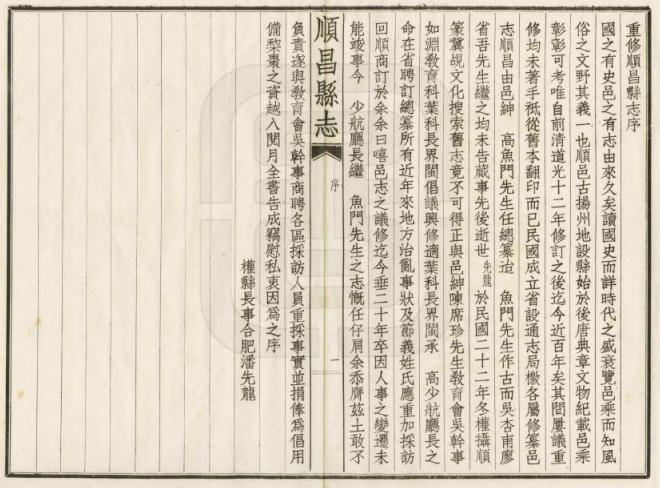 重修順昌縣志序
國之有史邑之有志由來久矣讀國史而詳時代之盛衰覽邑乘而知風
俗之文野其義一也順邑古揚州地設縣始於後唐典章文物紀載邑乘
彰彰可考唯自前清道光十二年修訂之後迄今近百年矣其間屢議重
修均未著手祇從舊本翻印而已民國成立省設通志局檄各屬修纂邑
志順昌由邑紳 高魚門先生任總纂迨 魚門先生作古而吳杏甫廖
省吾先生繼之均未告蕆事先後逝世先龍於民國二十二年冬權攝順
篆冀覘文化搜索舊志竟不可得正與邑紳陳席珍先生敎育會吳幹事
如淵敎育科葉科長界閩倡議興修適葉科長界閩承 高少航廳長之
命在省聘訂總纂所有近年來地方治亂事狀及節義姓氏應重加採訪
回順商訂於余余曰嘻邑志之議修迄今垂二十年卒因人事之變遷未
能竣事今 少航廳長繼 魚門先生之志慨任仔肩余忝膺茲土敢不
順昌縣志
序
一
負責遂與敎育會吳幹事商聘各區採訪人員重採事實並捐俸爲倡用
備棃棗之資越八閱月全書告成竊慰私衷因爲之序
權縣長事合肥潘先龍